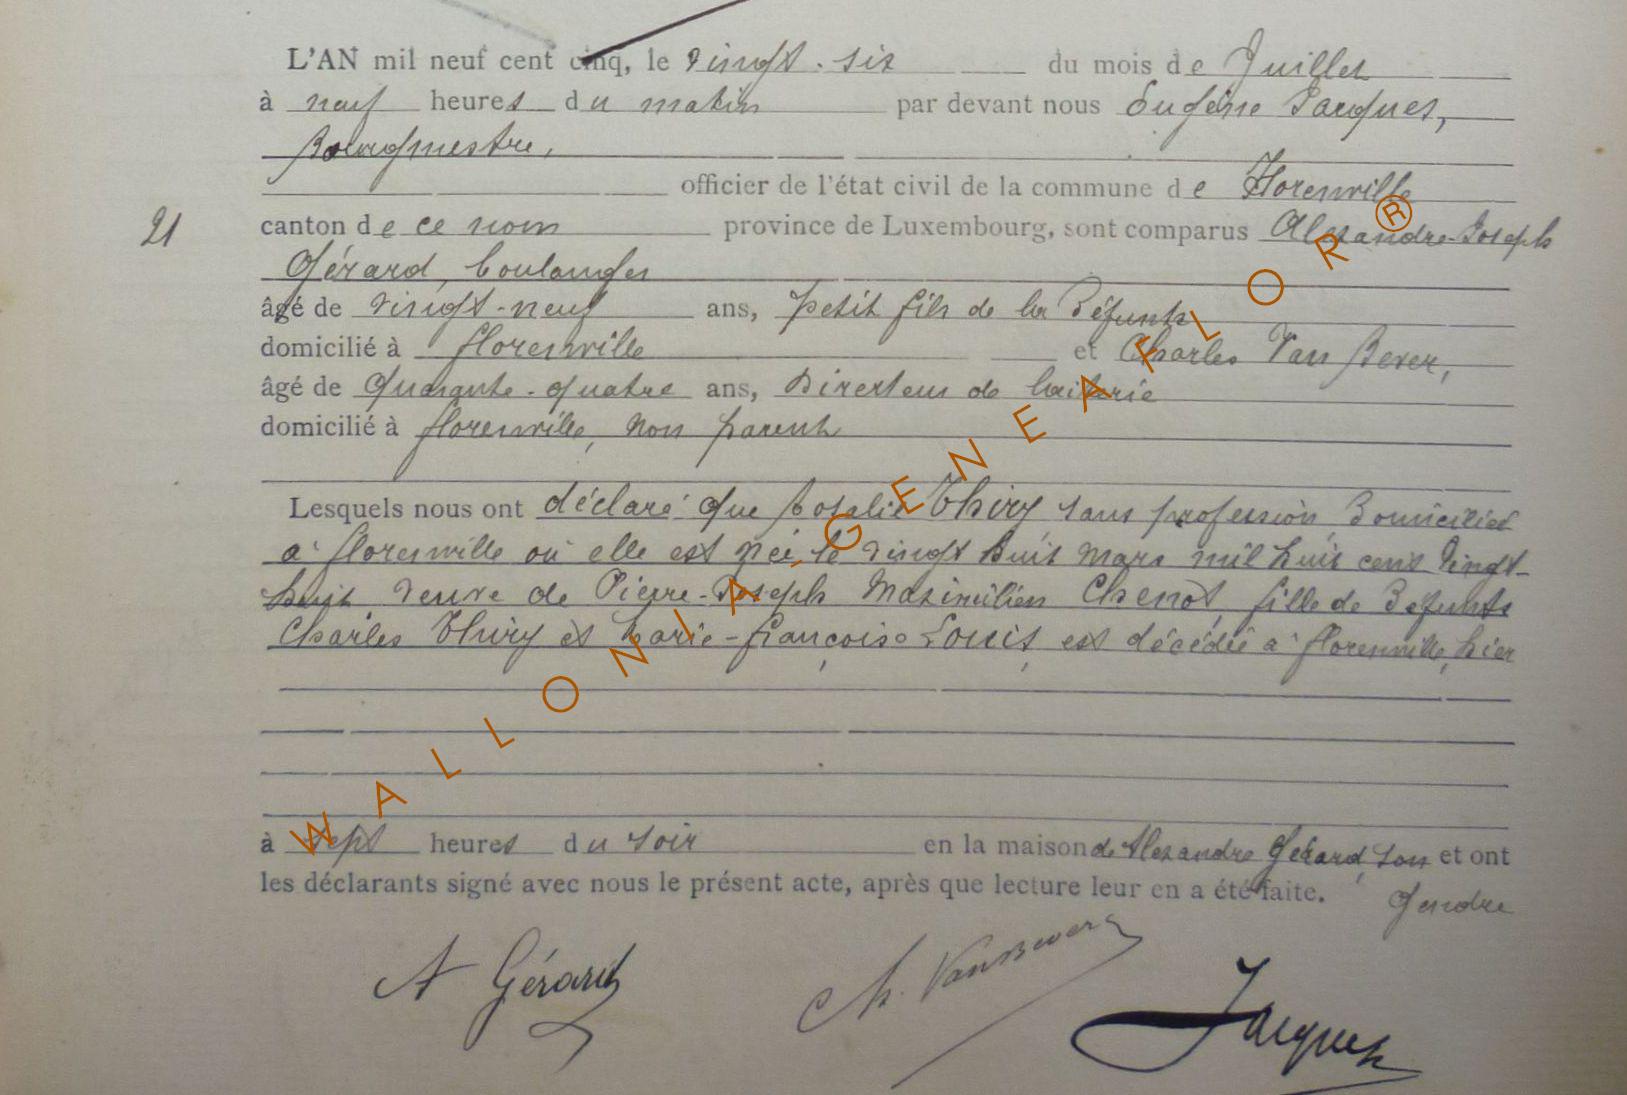 L'AN mil neuf cent cinq, le vingt-six du mois de Juillet
à neuf heures du matin par devant nous Eugène Jacques,
Bourgmestre,
officier de l'état civil de la commune de Florenville
21
canton de ce nom province de Luxembourg, sont comparus Alexandre-Joseph
Gérard, boulanger
âgé de vingt-neuf ans, petit fils de la Défunte
domicilié à florenville et Charles Van Bever,
âgé de quarante-quatre ans, Directeur de laiterie
domicilié à florenville, non parent
Lesquels nous ont déclaré que Rosalie Thiry sans profession, Domiciliée
à florenville où elle est née le vingt huit mars mil huit cent vingt-
huit veuve de Pierre-Joseph Maximilien Chenot, fille de Défunts
Charles Thiry et Marie-françoise Louis, est décédée à florenville, hier
à sept heures du soir en la maison de Alexandre Gérard, son et ont
les déclarants signé avec nous le présent acte, après que lecture leur en a été faite. gendre
A Gérard
Ch. VanBever
Jacques
WALLONIA-GENEAFLOR®